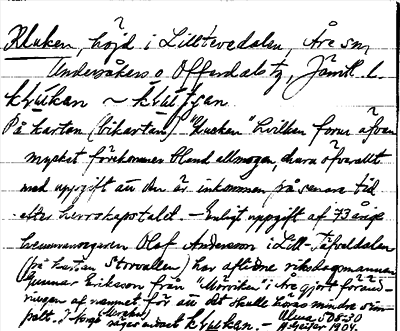 Kluken, höjd i Lilltevedalen, Åre sn,
Undersåkers o. Offerdals tg, Jämtl. l.
klúkan ~ klútjan
På kartan (bikartan) "Klucken" hvilken form äfven
mycket förekommer bland allmogen, dock öfverallt
med uppgift att den är inkommen på senare tid
efter herrskapstalet. – Enligt uppgift af 73 årige
hemmansegaren Olof Andersson i Lill-Täfveldalen
(på kartan Storvallen) har aflidne riksdagsmannen
Gunnar Eriksson från "Mörviken" i Åre gjort föränd-
ringen af namnet för att det skulle höras mindre sim-
pelt. I Norge säger endast klúkan. –
Augusti 1904.